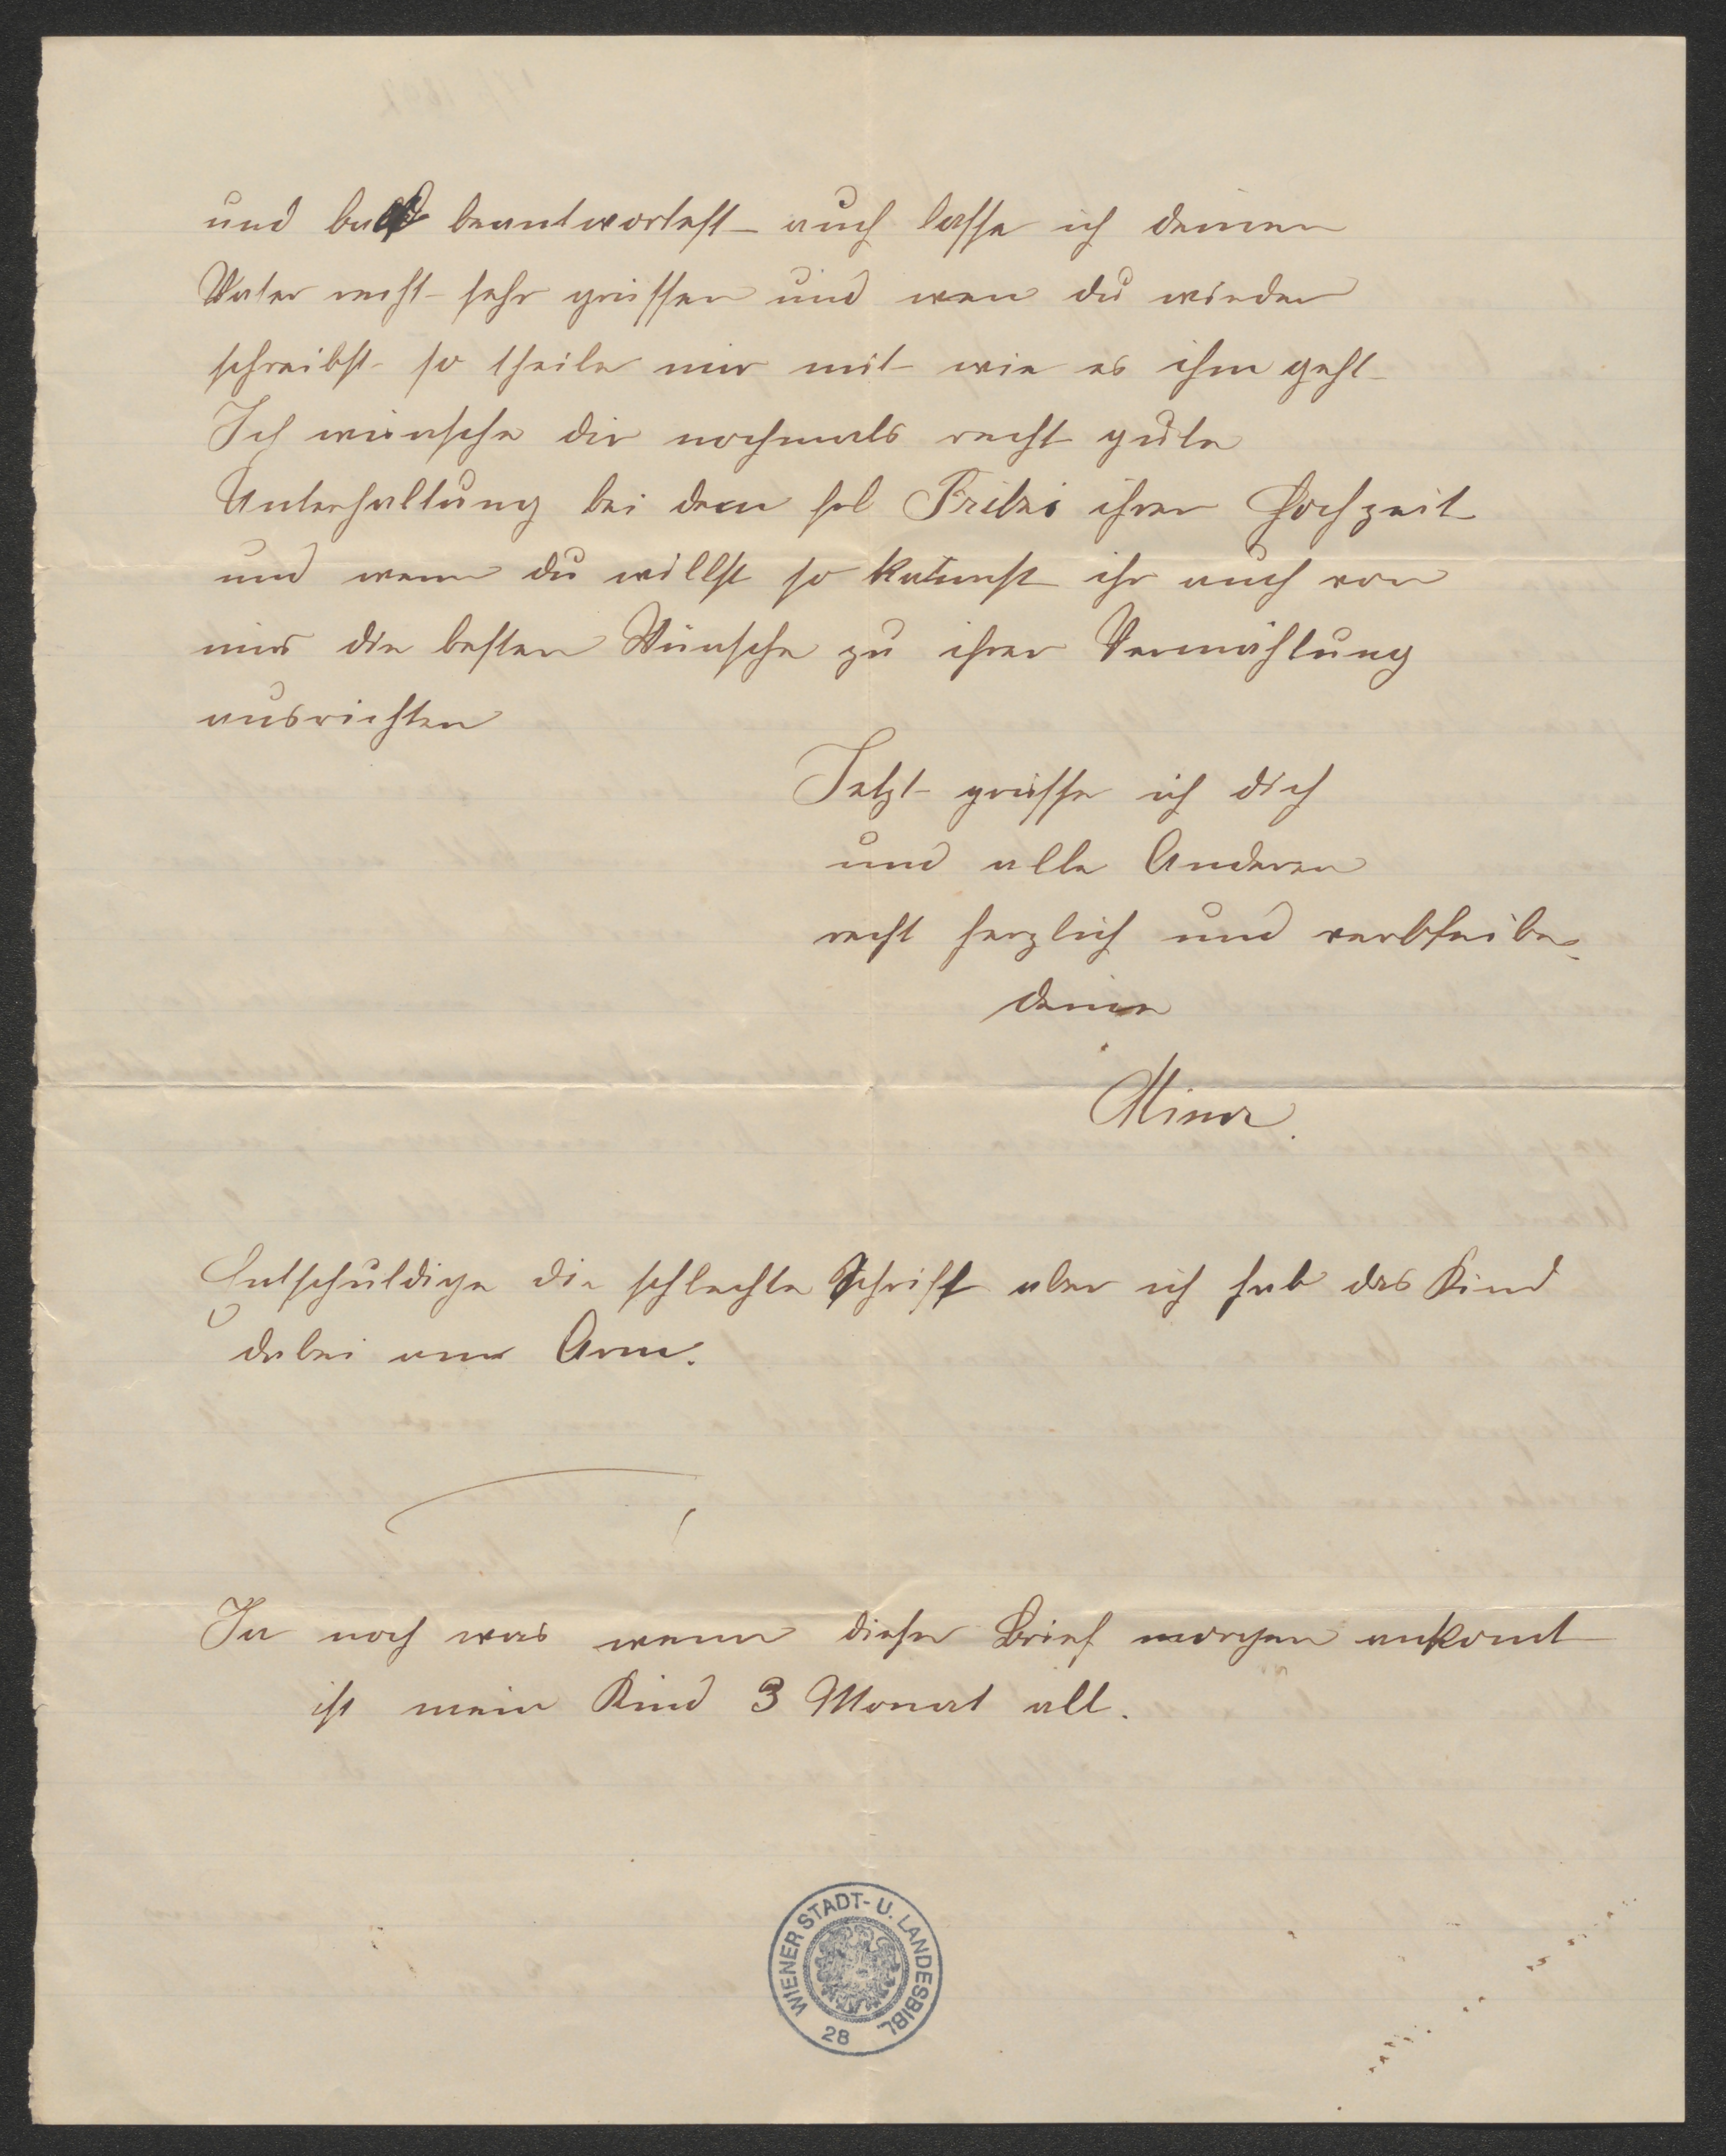 und bald beantwortest auch lasse ich deinen
Vater recht sehr grüssen und wen du wieder
schreibst so theile mir mit wie es ihm geht
Ich wünsche dir nochmals recht gute
Unterhaltung bei dem Frl Fritzi ihrer Hochzeit
und wenn du willst so kannst ihr auch von
mir die besten Wünsche zu ihrer Vermählung
ausrichten
Jetzt grüsse ich dich
und alle Anderen
recht herzlich und verbleibe
deine
Mina.
Entschuldige die schlechte Schrift aber ich hab das Kind
dabei am Arm.
Ja noch was wenn dieser Brief morgen ankomt
ist mein Kind 3 Monat alt.
WIENER STADT- U. LANDESBIBL.
28